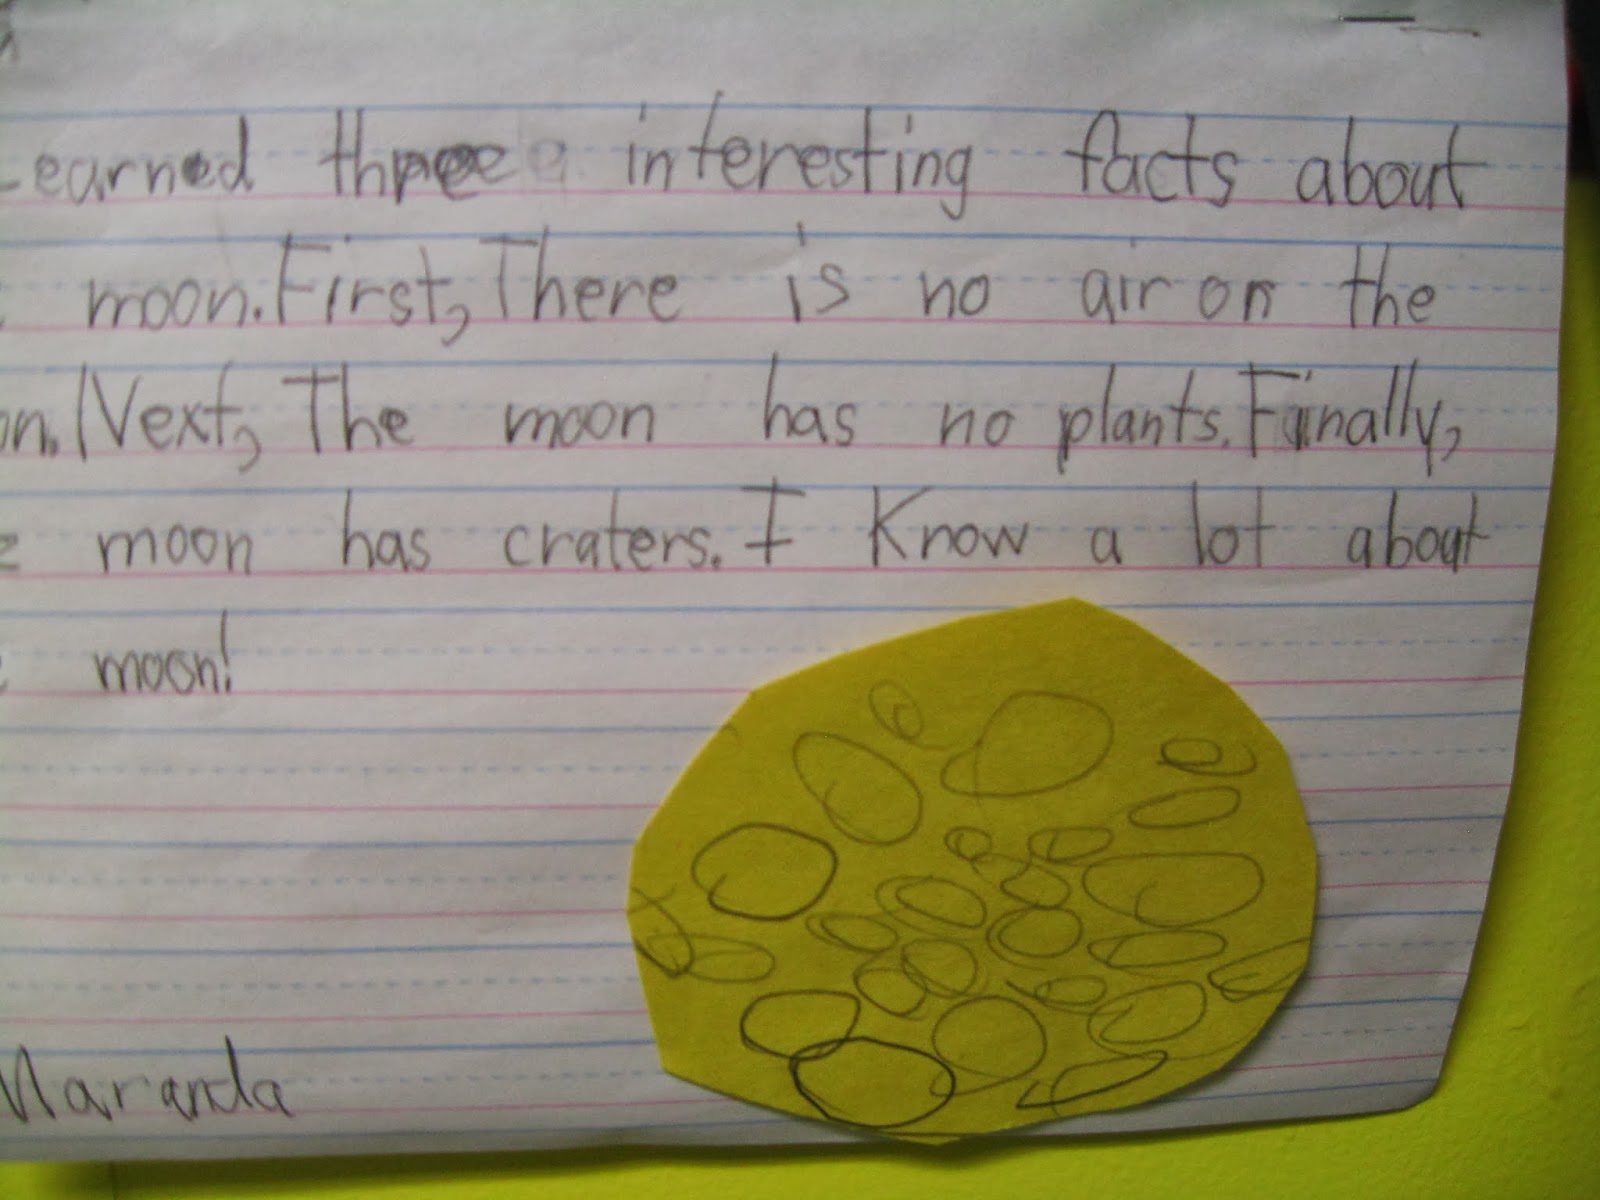 Learned three interesting facts about
moon. First, There is no air on the
on. Next, The moon has no plants. Finally,
moon has craters. I Know a lot about
moon!
Maranda